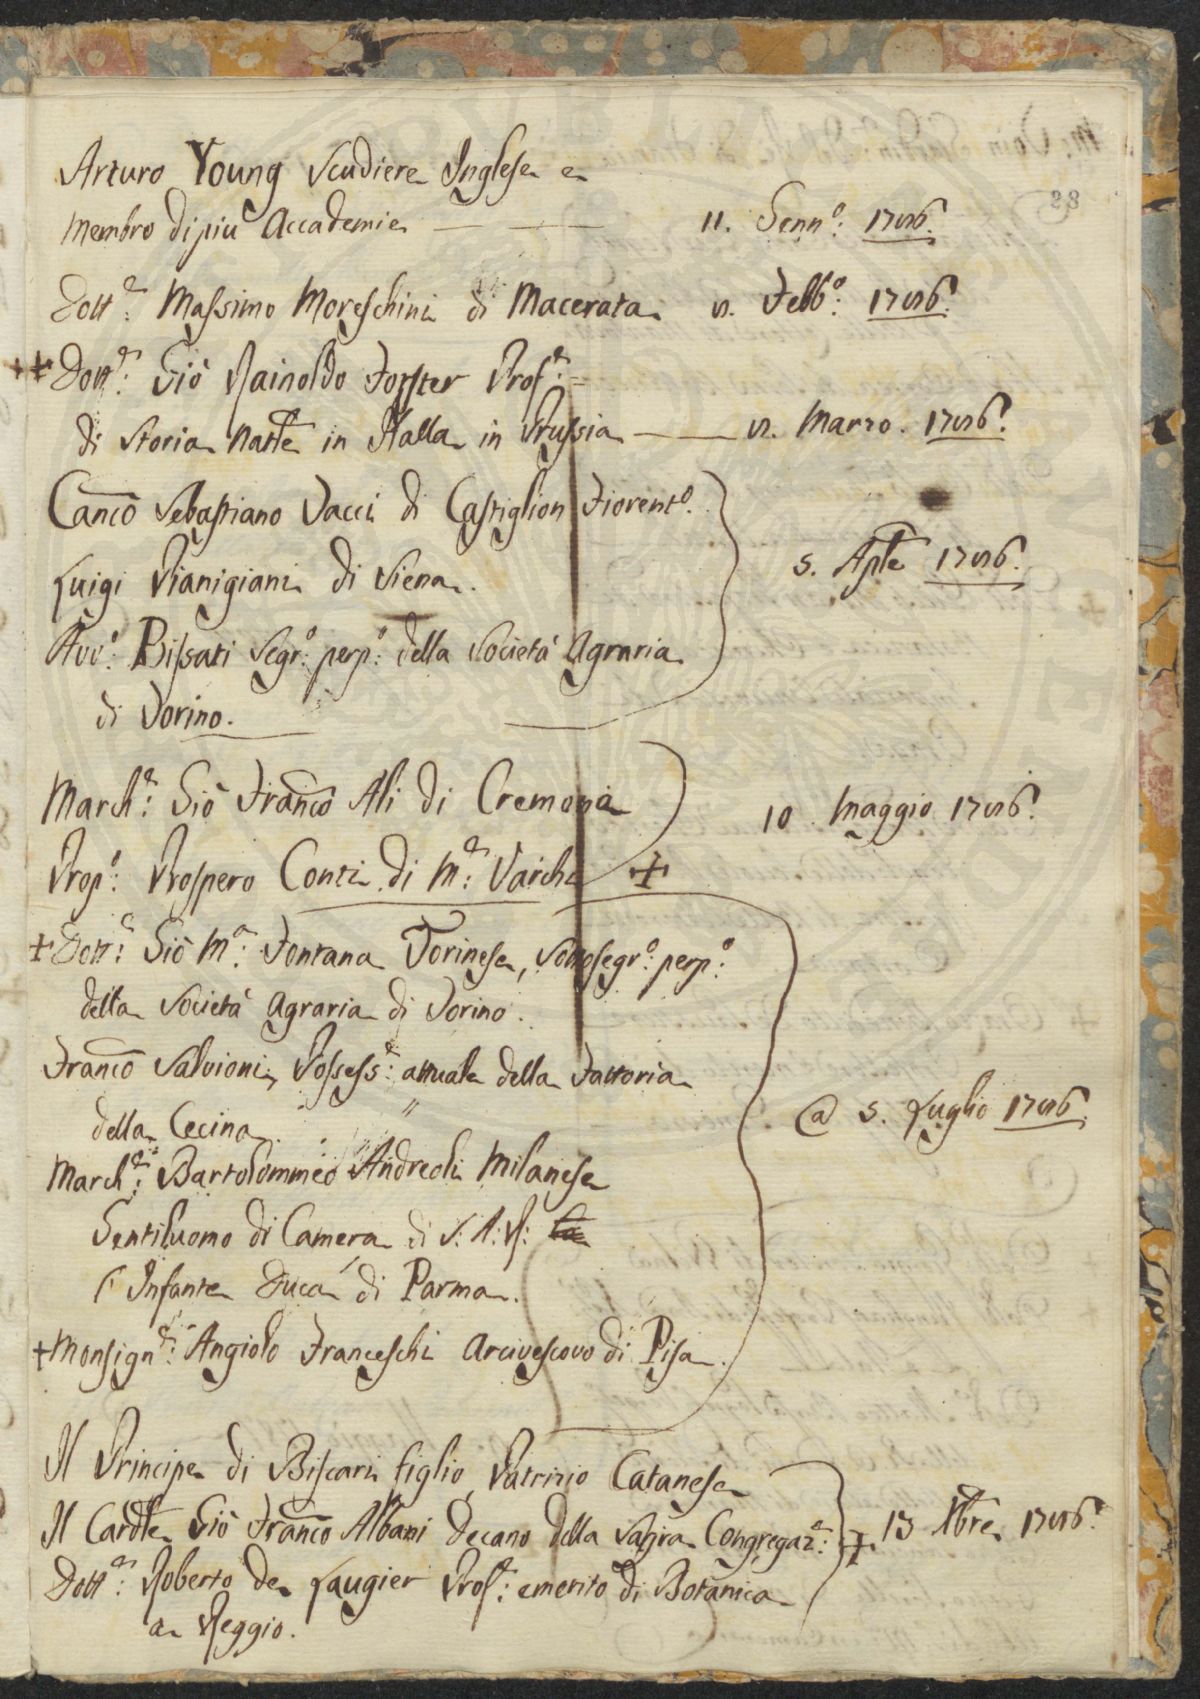 38
Arturo Young Scudiere Inglese e
Membro di piu Accademie — — 11. Genn.o: 1786.
Dott.e: Massimo Moreschini di Macerata 8. Febb.o: 1786.
++ Dott.e: Gio Rainoldo Forster Prof.e:
di Storia Natle in Halla in Prussia — 8. Marzo. 1786.
Canco Sebastiano Vacci di Castiglion Fiorento.
Luigi Pianigiani di Siena.
5. Aple 1786.
Avv.o: Bissati Segr.o: perp.o: della Società Agraria
di Torino.
March.e: Gio Franco Ali di Cremona
10 Maggio 1786.
Prop.o: Prospero Conti di M.e: Varchi +
+ Dott.e: Gio M.a: Fontana Torinese, Sottosegr.o: perp.o:
della Società Agraria di Torino.
Franco Salvioni, Possess.e: attuale della Fattoria
della Cecina
@ 5. Luglio 1786.
March.e: Bartolommeo Andreoli Milanese
Gentiluomo di Camera di S: A: R:
l'Infante Duca di Parma.
+ Monsign.e: Angiolo Franceschi Arcivescovo di Pisa.
Il Principe di Biscari figlio, Patrizio Catanese
Il Cardle Gio Franco Albani Decano della Sagra Congregaz.e: + 13 Xbre 1786.
Dott.e: Roberto de Laugier Prof.e: emerito di Botanica
a Reggio.